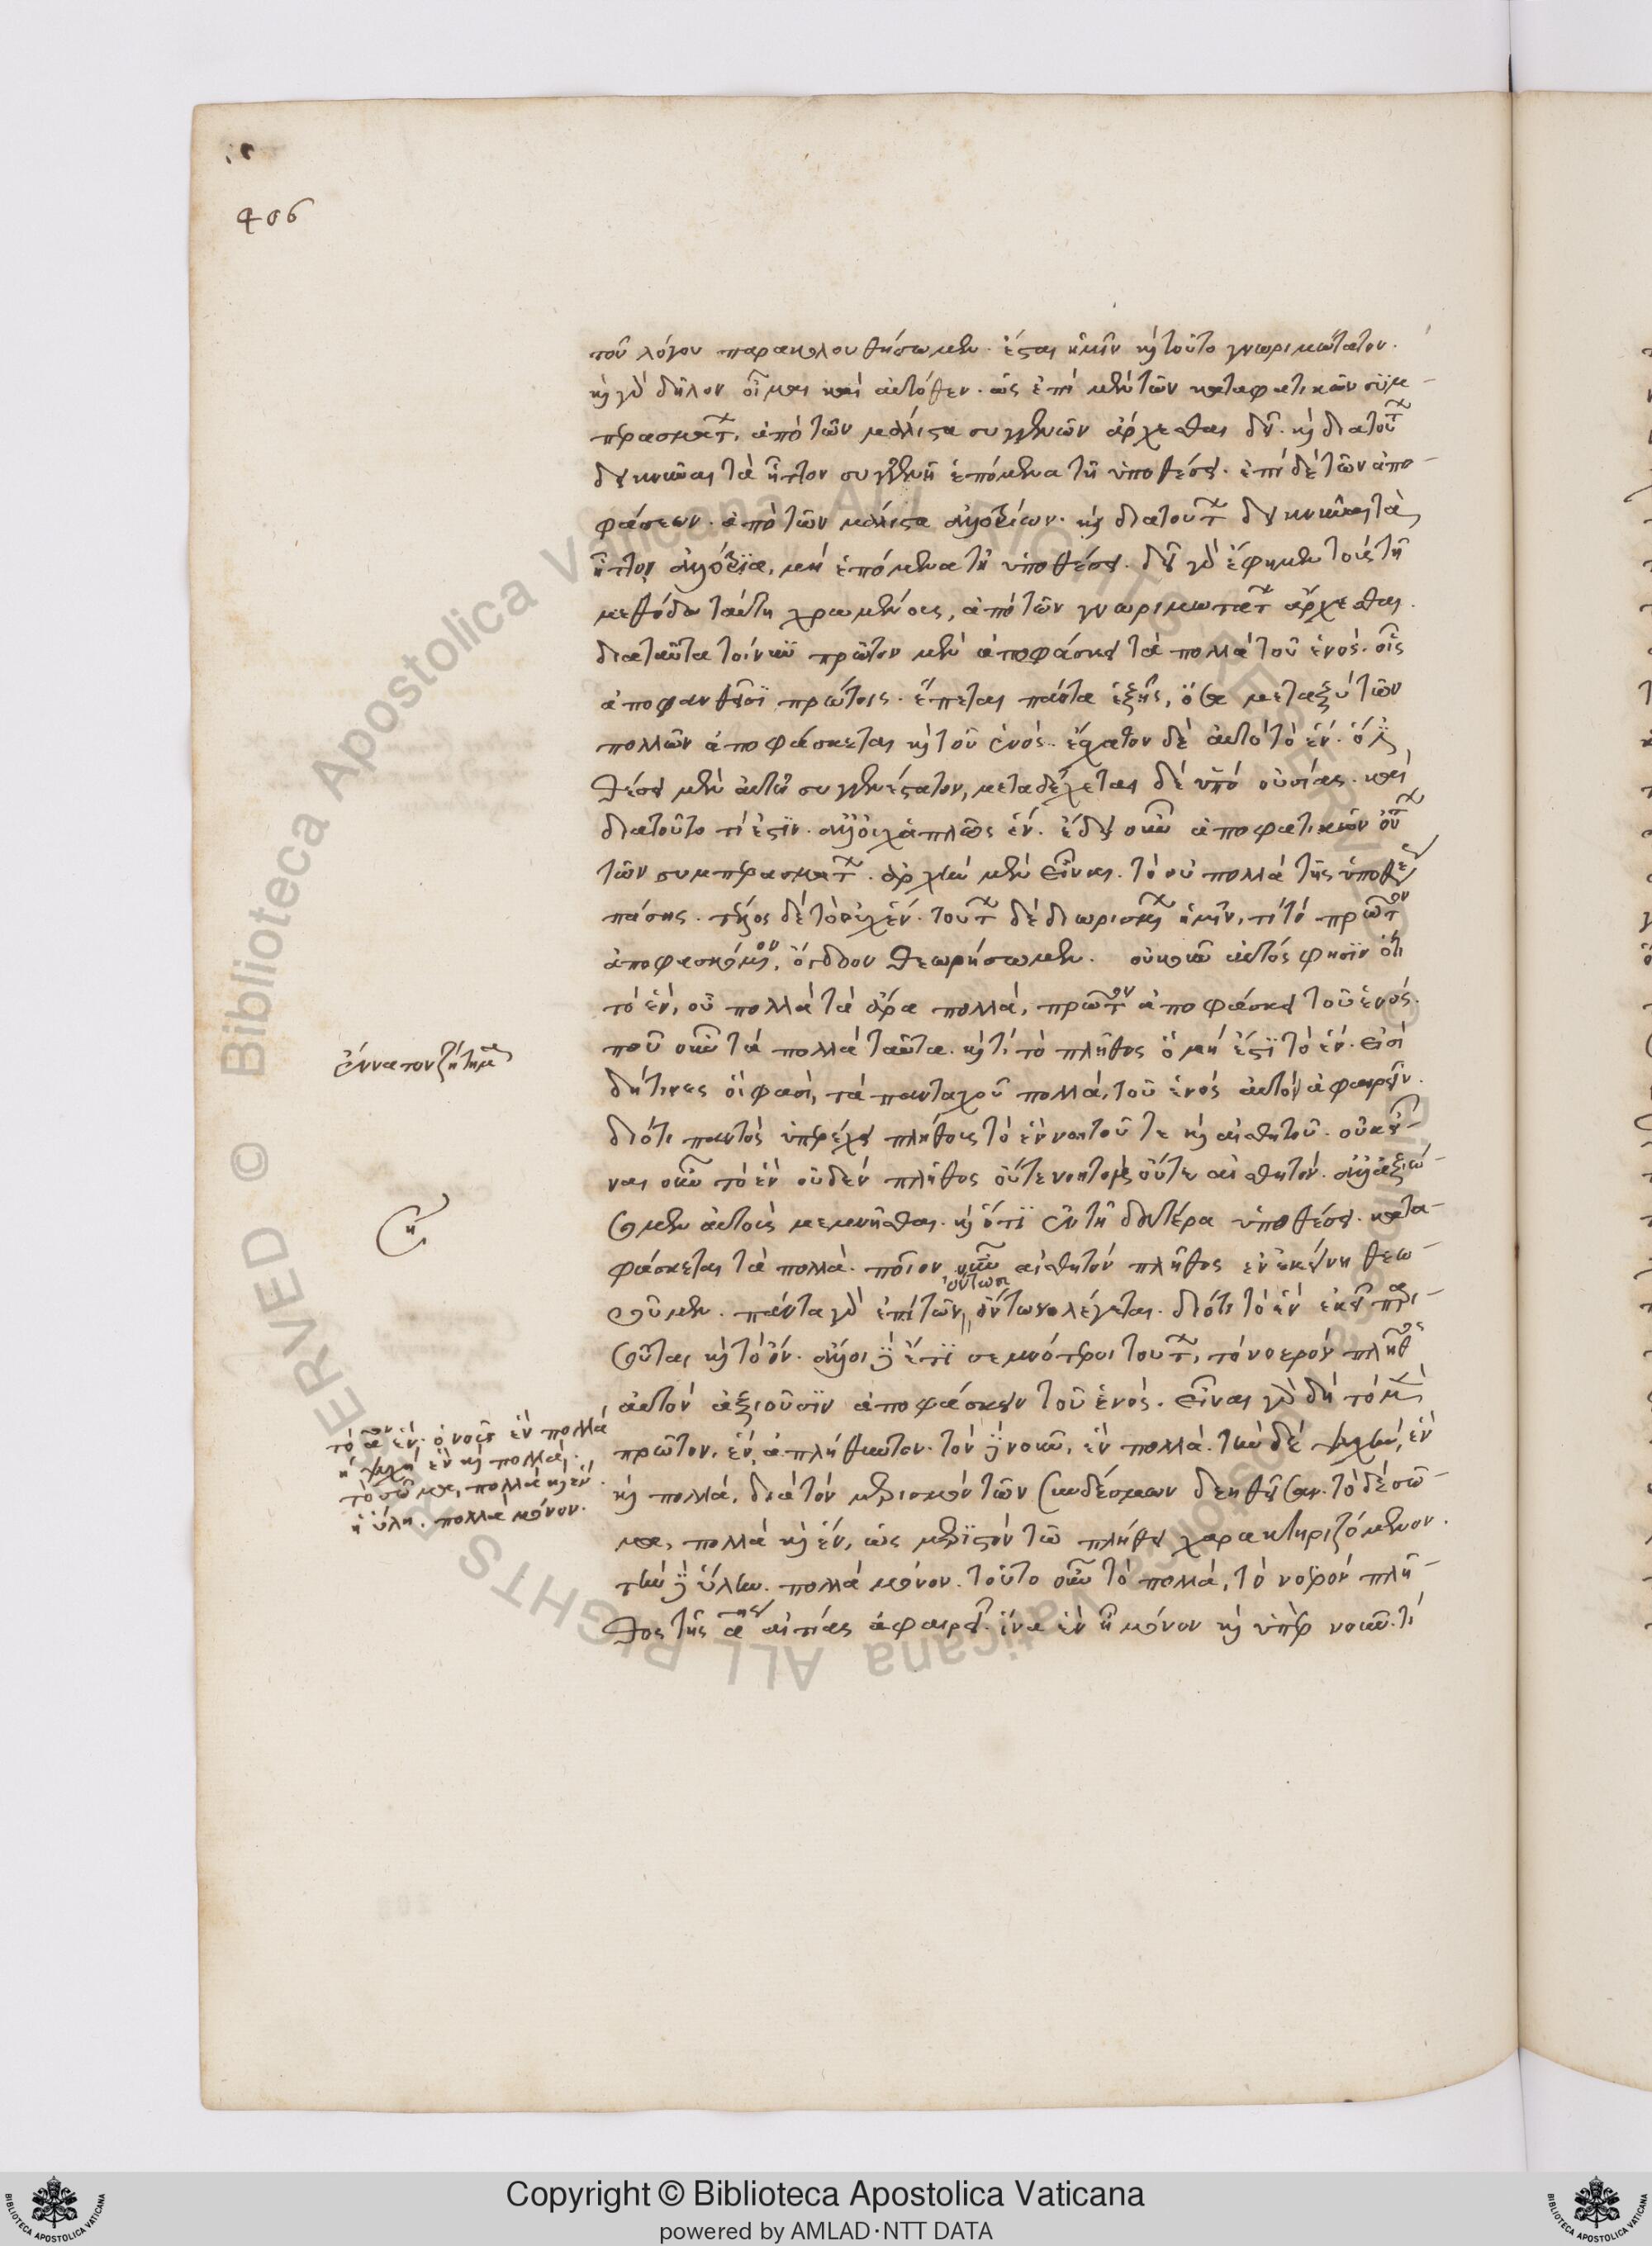 406
τοῦ λόγου παρακολουθήσωμεν. ἔσται ἡμῖν καὶ τοῦτο γνωριμώτατον.
καὶ γὰρ δῆλον οἶμαι καὶ αὐτόθεν. ὡς ἐπὶ μὲν τῶν καταφατικῶν συμ-
περασμάτων, ἀπὸ τῶν μάλιστα συγγενῶν ἄρχεσθαι δεῖ. καὶ διὰ τούτων
δεικνύναι τὰ ἧττον συγγενῆ ἑπόμενα τῇ ὑποθέσει. ἐπὶ δὲ τῶν ἀπο-
φάσεων. ἀπὸ τῶν μάλιστα ἀλλοτρίων. καὶ διὰ τούτων δεικνύναι τὰ
ἧττον ἀλλότρια, μὴ ἑπόμενα τῇ ὑποθέσει. δεῖ γὰρ ἔφημεν τοὺς τῇ
μεθόδῳ ταύτῃ χρωμένους, ἀπὸ τῶν γνωριμωτάτων ἄρχεσθαι.
διὰ ταῦτα τοίνυν πρῶτον μὲν ἀποφάσκει τὰ πολλὰ τοῦ ἑνός. οἷς
ἀποφανθεῖσι πρώτοις. ἕπεται πάντα ἑξῆς, ὅσα μεταξὺ τῶν
πολλῶν ἀποφάσκεται καὶ τοῦ ἑνός. ἔσχατον δὲ αὐτὸ τὸ ἕν. ὃ τῇ
θέσει μὲν αὐτῷ συγγενέστατον, μεταδέχεται δὲ ὑπὸ οὐσίας. καὶ
διὰ τοῦτο τὶ ἐστὶν. ἀλλ' οὐχ ἁπλῶς ἕν. ἔδει οὖν ἀποφατικῶν ὄντων
τῶν συμπερασμάτων. ἀρχὴν μὲν εἶναι. τὸ οὐ πολλὰ τῆς ὑποθέσεως
πάσης. τέλος δὲ τὸ οὐχ ἕν. τούτων δὲ διωρισμένων ἡμῖν, τί τὸ πρῶτον
ἀποφασκόμενον, ὄπιθεν θεωρήσωμεν. οὐκοῦν αὐτός φησὶν ὅτι
τὸ ἕν, οὐ πολλὰ τὰ ἄρα πολλά, πρῶτον ἀποφάσκει τοῦ ἑνός.
ποῦ οὖν τὰ πολλὰ ταῦτα. καὶ τί τὸ πλῆθος ὃ μή ἐστι τὸ ἕν. εἰσὶ
δή τινες οἵ φασὶ, τὰ πανταχοῦ πολλά, τοῦ ἑνὸς αὐτὸν ἀφαιρεῖν.
διότι παντὸς ὑπερέχει πλήθους τὸ ἓν νοητοῦ τε καὶ αἰσθητοῦ. οὐκ εἶ-
ναι οὖν τὸ ἓν οὐδὲν πλῆθος οὔτε νοητὸν οὔτε αἰσθητόν. ἀλλ' ἀξιώ-
σομεν αὐτοὺς μεμνῆσθαι. καὶ ὅτι ἐν τῇ δευτέρᾳ ὑποθέσει. κατα-
φάσκεται τὰ πολλά. ποῖον οὖν αἰσθητὸν πλῆθος ἐν ἐκείνῃ θεω-
ροῦμεν. πάντα γὰρ ἐπὶ τῶν ὄντως ὄντων λέγεται. διότι τὸ ἓν ἐκεῖ παρι-
σοῦται καὶ τὸ ὄν. ἄλλοι δὲ ἔτι σεμνότεροι τούτων, τὸ νοερὸν πλῆθος
αὐτὸν ἀξιοῦσιν ἀποφάσκειν τοῦ ἑνός. εἶναι γὰρ δὴ τὸ μὲν
πρῶτον, ἕν, ἀπλήθυντον. τὸν δὲ νοῦν, ἓν πολλά. τὴν δὲ ψυχήν, ἓν
καὶ πολλά, διὰ τὸν μερισμὸν τῶν συνδέσμων δεηθεῖσαν. τὸ δὲ σῶ-
μα, πολλὰ καὶ ἕν, ὡς μεριστὸν τῷ πλήθει χαρακτηριζόμενον.
τὴν δὲ ὕλην. πολλὰ μόνον. τοῦτο οὖν τὸ πολλά, τὸ νοερὸν πλῆ-
θος τῆς αης αἰτίας ἀφαιρεῖ. ἵνα ἓν ᾖ μόνον καὶ ὑπὲρ νοῦν. τί
ἔννατον ζήτημα
ση
τὸ αον ἕν. ὁ νοῦς ἓν πολλά
ἡ ψυχὴ ἓν καὶ πολλά,
τὸ σῶμα, πολλὰ καὶ ἕν.
ἡ ὕλη. πολλὰ μόνον.
Copyright © Biblioteca Apostolica Vaticana
powered by AMLAD·NTT DATA